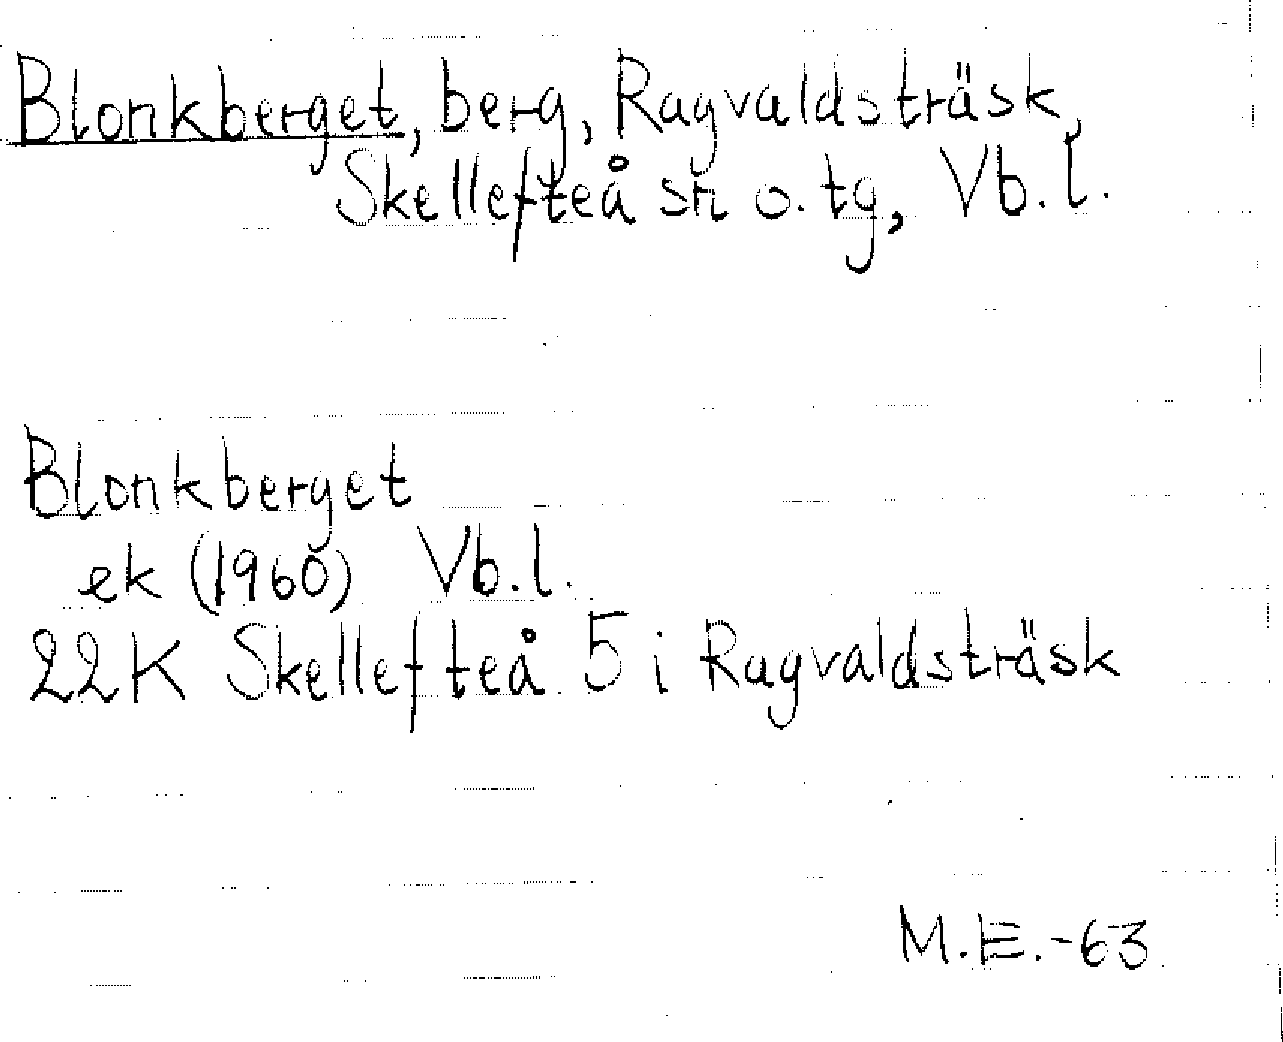 Blonkberget, berg, Ragvaldsträsk,
Skellefteå sn o. tg, Vb. l.
Blonkberget
ek (1960) Vb. l.
22K Skellefteå 5 i Ragvaldsträsk
M.E.-63